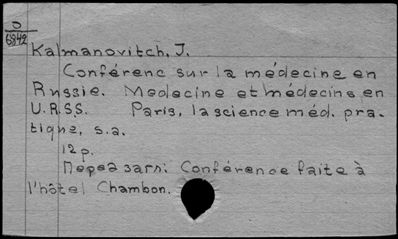 O
6842
Kalmanovitch, J.
Conférenc sur la médecine en
Russie. Medecine et médecins en
U.R.S.S. Paris, la science méd. pra-
tique, s.a.
12 p.
Перед загл: Conférence faite à
l'hôtel Chambon.